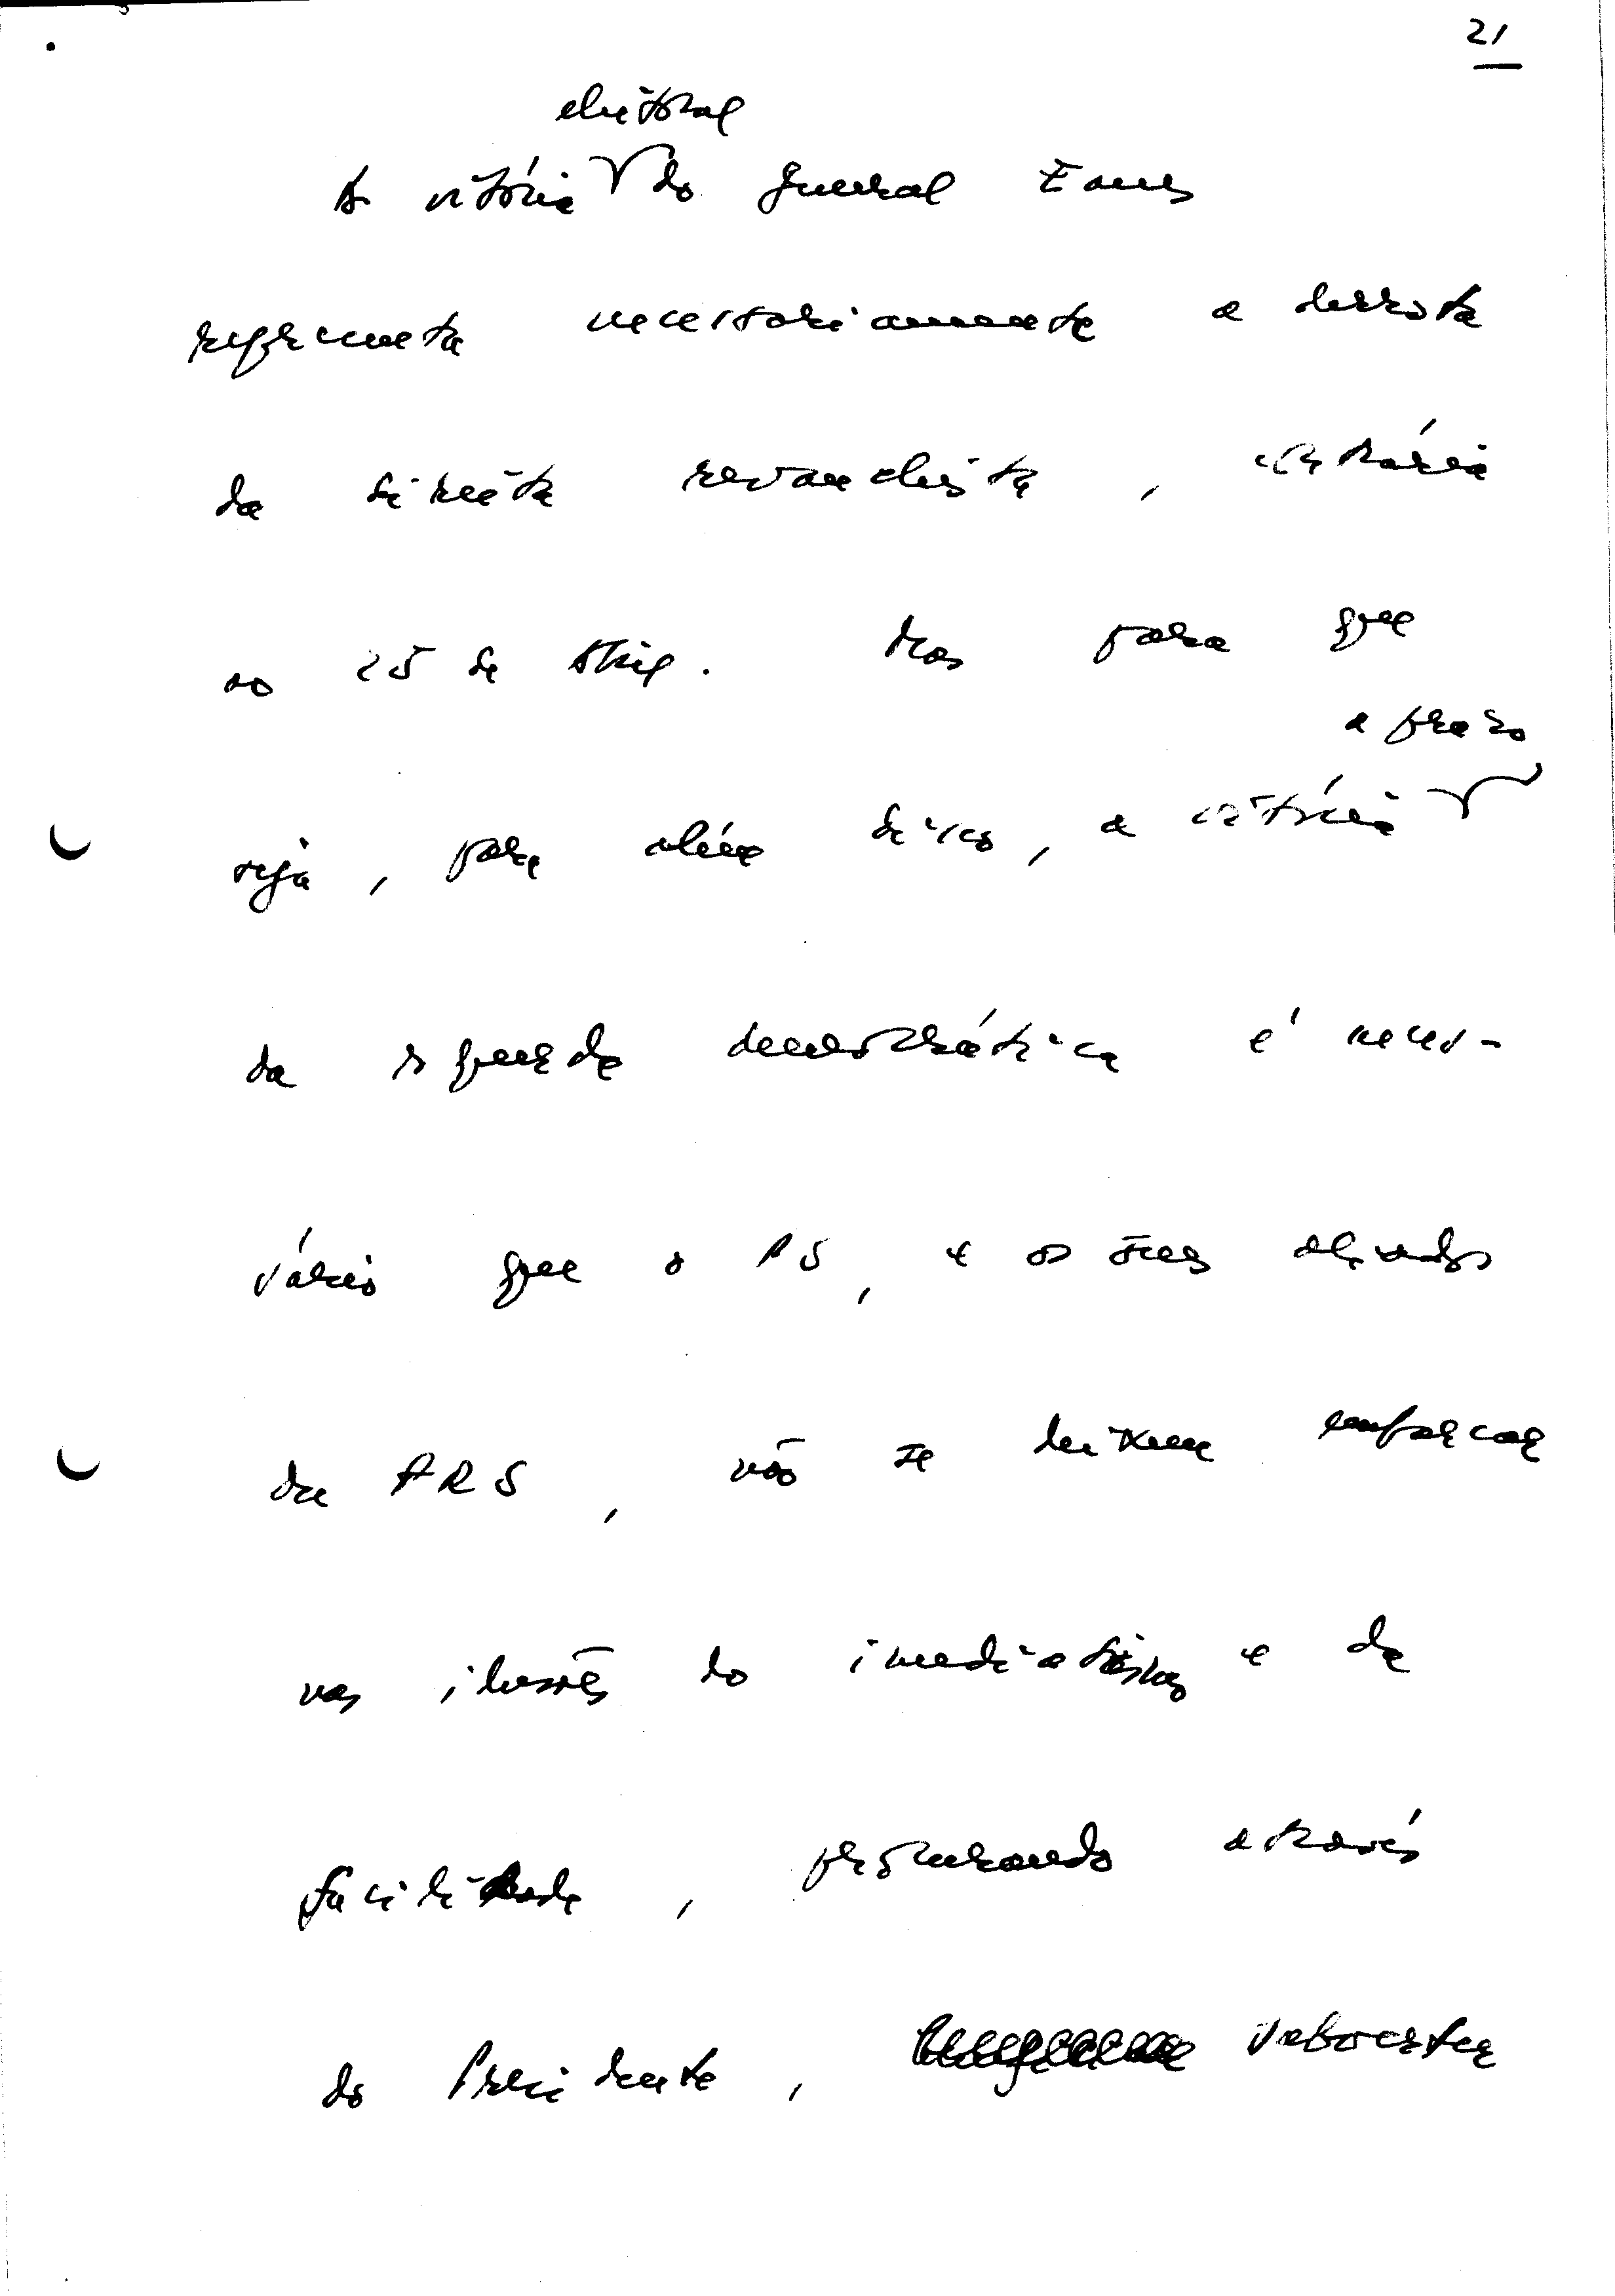 21
eleitoral
A vitória do general Eanes
representa necessariamente a derrota
da direita revanchista, contrária
ao 25 de Abril. Mas para que
a prazo
seja, para além disso, a vitória
da esquerda democrática é neces-
sário que o PS, e os seus aliados
da FRS, não se deixem embarcar
nas ilusões do imediatismo e da
facilidade, procurando através
do Presidente,